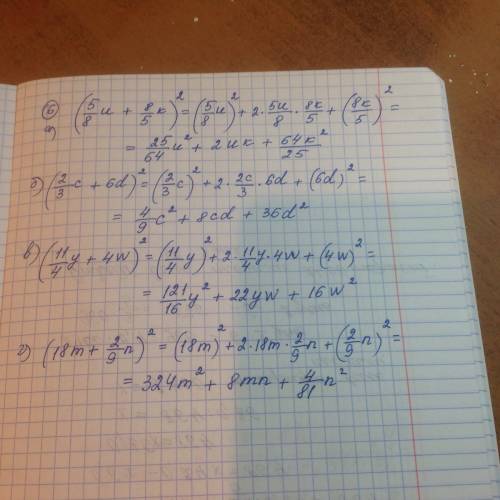 ⑥ а) (5/8 u + 8/5 k)² = (5/8 u)² + 2 · 5u/8 · 8k/5 + (8k/5)² =
= 25/64 u² + 2uk + 64k²/25
б) (2/3 c + 6d)² = (2/3 c)² + 2 · 2c/3 · 6d + (6d)² =
= 4/9 c² + 8cd + 36d²
в) (11/4 y + 4w)² = (11/4 y)² + 2 · 11/4 y · 4w + (4w)² =
= 121/16 y² + 22yw + 16w²
г) (18m + 2/9 n)² = (18m)² + 2 · 18m · 2/9 n + (2/9 n)² =
= 324m² + 8mn + 4/81 n²